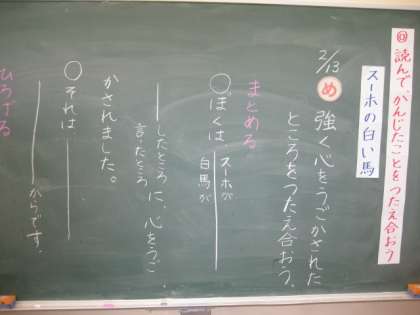 ◎読んで、かんじたことをつたえ合おう
スーホの白い馬
2/13
め 強く心をうごかされた
ところをつたえ合おう。
まとめる
○ぼくは、スーホが
白馬が
したところ
言ったところ
に、心をうご
かされました。
○それは
からです。
ひろげる